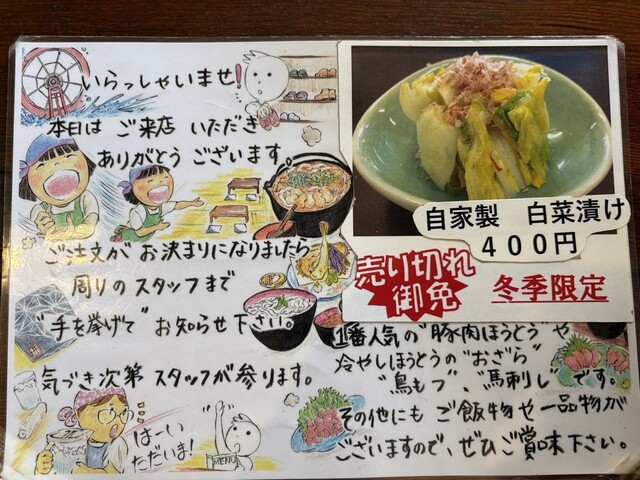 いらっしゃいませ!
本日は ご来店 いただき
ありがとう ございます
ご注文が お決まりになりましたら
周りのスタッフまで
"手を挙げて" お知らせ下さい。
気づき次第 スタッフが参ります。
はーい
ただいま!
MENU
自家製 白菜漬け
400円
売り切れ
御免
冬季限定
1番人気の"豚肉ほうとう"や
冷やしほうとうの"おざら"
"鳥もつ"、"馬刺し"です。
その他にも ご飯物や一品物が
ございますので、ぜひご賞味下さい。